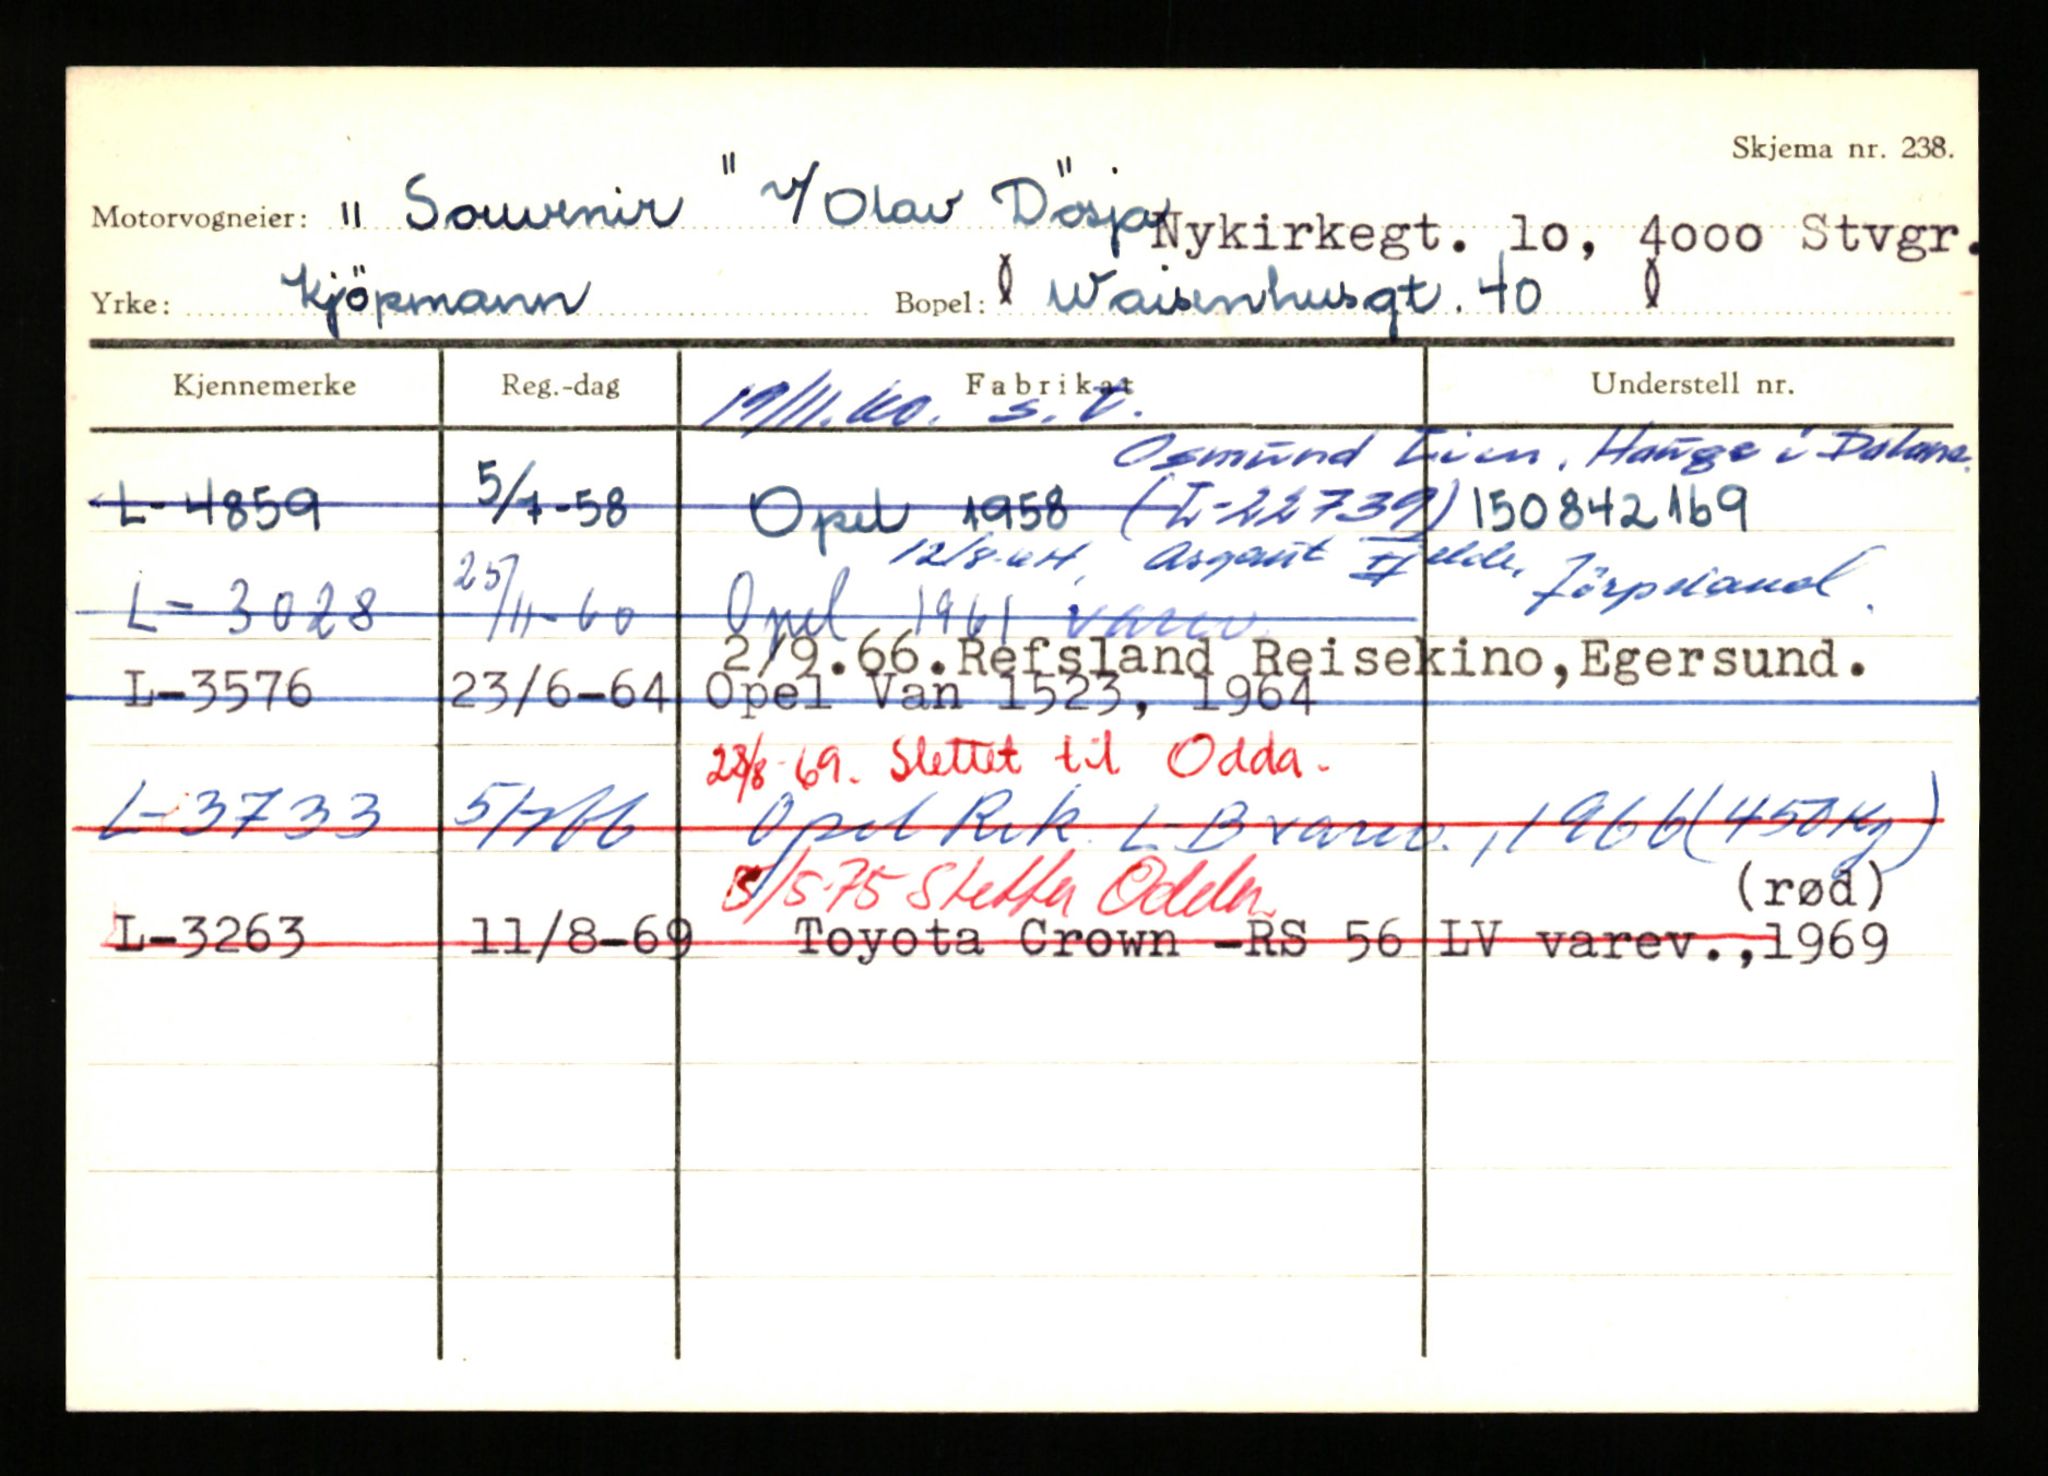 Skjema nr. 238.
Motorvogneier: "Souvenir" v/Olav Dösja Nykirkegt. 1o, 4ooo Stvgr.
Yrke: Kjöpmann Bopel: Waisenhusgt. 40
Kjennemerke Reg.-dag Fabrikat Understell nr.
19/11.60. s.t.
Osmund Lien, Hauge i Dalane.
L-4859 5/7-58 Opel 1958 (L-22739) 150842169
12/8-64, Asgaut Fjelde, Jörpeland.
L-3028 25/11-60 Opel 1961 varev.
2/9.66.Refsland Reisekino,Egersund.
L-3576 23/6-64 Opel Van 1523, 1964
23/8-69. Slettet til Odda.
L-3733 5/7/66 Opel Rek. L-B varev., 1966 (450 Kg)
5/5-75 Slettet Odda (rød)
L-3263 11/8-69 Toyota Crown -RS 56 LV varev.,1969